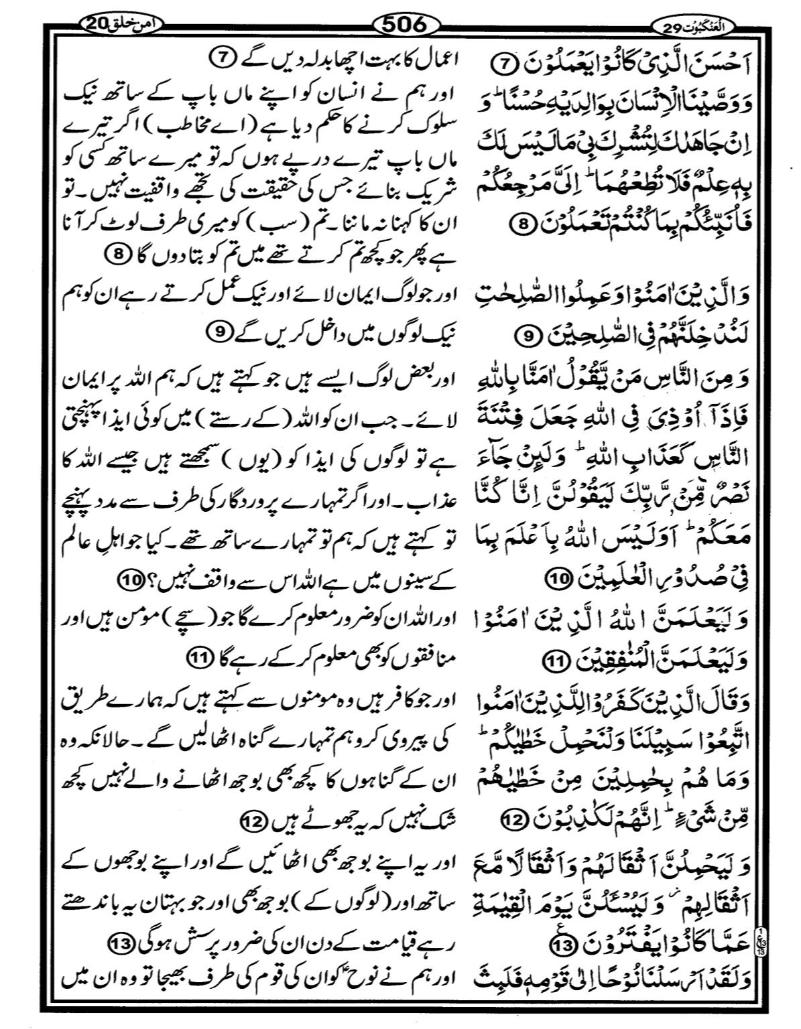 العنكبوت 29
506
امن خلق 20
اَحۡسَنَ الَّذِىۡ كَانُوۡا يَعۡمَلُوۡنَ ⑦
وَوَصَّيۡنَا الۡاِنۡسَانَ بِوَالِدَيۡهِ حُسۡنًا‌ ؕ وَ
اِنۡ جَاهَدٰكَ لِتُشۡرِكَ بِىۡ مَا لَيۡسَ لَكَ
بِهٖ عِلۡمٌ فَلَا تُطِعۡهُمَا ؕ اِلَىَّ مَرۡجِعُكُمۡ
فَاُنَبِّئُكُمۡ بِمَا كُنۡتُمۡ تَعۡمَلُوۡنَ ⑧
وَالَّذِيۡنَ اٰمَنُوۡا وَعَمِلُوا الصّٰلِحٰتِ
لَـنُدۡخِلَـنَّهُمۡ فِى الصّٰلِحِيۡنَ ⑨
وَمِنَ النَّاسِ مَنۡ يَّقُوۡلُ اٰمَنَّا بِاللّٰهِ
فَاِذَاۤ اُوۡذِىَ فِى اللّٰهِ جَعَلَ فِتۡنَةَ
النَّاسِ كَعَذَابِ اللّٰهِ ؕ وَلَئِنۡ جَآءَ
نَصۡرٌ مِّنۡ رَّبِّكَ لَيَـقُوۡلُنَّ اِنَّا كُنَّا
مَعَكُمۡ‌ ؕ اَوَلَـيۡسَ اللّٰهُ بِاَعۡلَمَ بِمَا
فِىۡ صُدُوۡرِ الۡعٰلَمِيۡنَ ⑩
وَلَيَـعۡلَمَنَّ اللّٰهُ الَّذِيۡنَ اٰمَنُوۡا
وَلَيَـعۡلَمَنَّ الۡمُنٰفِقِيۡنَ ⑪
وَقَالَ الَّذِيۡنَ كَفَرُوۡا لِلَّذِيۡنَ اٰمَنُوا
اتَّبِعُوۡا سَبِيۡلَـنَا وَلۡـنَحۡمِلۡ خَطٰيٰكُمۡ ؕ
وَمَا هُمۡ بِحٰمِلِيۡنَ مِنۡ خَطٰيٰهُمۡ
مِّنۡ شَىۡءٍ‌ ؕ اِنَّهُمۡ لَـكٰذِبُوۡنَ ⑫
وَلَيَحۡمِلُنَّ اَثۡقَالَهُمۡ وَاَثۡقَالًا مَّعَ
اَثۡقَالِهِمۡ‌ وَلَـيُسۡـئَلُنَّ يَوۡمَ الۡقِيٰمَةِ
عَمَّا كَانُوۡا يَفۡتَرُوۡنَ ⑬
وَلَقَدۡ اَرۡسَلۡنَا نُوۡحًا اِلٰى قَوۡمِهٖ فَلَبِثَ
اعمال کا بہت اچھا بدلہ دیں گے ⑦
اور ہم نے انسان کو اپنے ماں باپ کے ساتھ نیک
سلوک کرنے کا حکم دیا ہے (اے مخاطب) اگر تیرے
ماں باپ تیرے درپے ہوں کہ تو میرے ساتھ کسی کو
شریک بنائے جس کی حقیقت کی تجھے واقفیت نہیں۔ تو
ان کا کہنا نہ ماننا۔ تم (سب) کو میری طرف لوٹ کر آنا
ہے پھر جو کچھ تم کرتے تھے میں تم کو بتا دوں گا ⑧
اور جو لوگ ایمان لائے اور نیک عمل کرتے رہے ان کو ہم
نیک لوگوں میں داخل کریں گے ⑨
اور بعض لوگ ایسے ہیں جو کہتے ہیں کہ ہم اللہ پر ایمان
لائے۔ جب ان کو اللہ (کے رستے) میں کوئی ایذا پہنچتی
ہے تو لوگوں کی ایذا کو (یوں) سمجھتے ہیں جیسے اللہ کا
عذاب۔ اور اگر تمہارے پروردگار کی طرف سے مدد پہنچے
تو کہتے ہیں کہ ہم تو تمہارے ساتھ تھے۔ کیا جو اہلِ عالم
کے سینوں میں ہے اللہ اس سے واقف نہیں؟ ⑩
اور اللہ ان کو ضرور معلوم کرے گا جو (سچے) مومن ہیں اور
منافقوں کو بھی معلوم کر کے رہے گا ⑪
اور جو کافر ہیں وہ مومنوں سے کہتے ہیں کہ ہمارے طریق
کی پیروی کرو ہم تمہارے گناہ اٹھا لیں گے۔ حالانکہ وہ
ان کے گناہوں کا کچھ بھی بوجھ اٹھانے والے نہیں کچھ
شک نہیں کہ یہ جھوٹے ہیں ⑫
اور یہ اپنے بوجھ بھی اٹھائیں گے اور اپنے بوجھوں کے
ساتھ اور (لوگوں کے) بوجھ بھی اور جو بہتان یہ باندھتے
رہے قیامت کے دن ان کی ضرور پرسش ہوگی ⑬
اور ہم نے نوحؑ کو ان کی قوم کی طرف بھیجا تو وہ ان میں